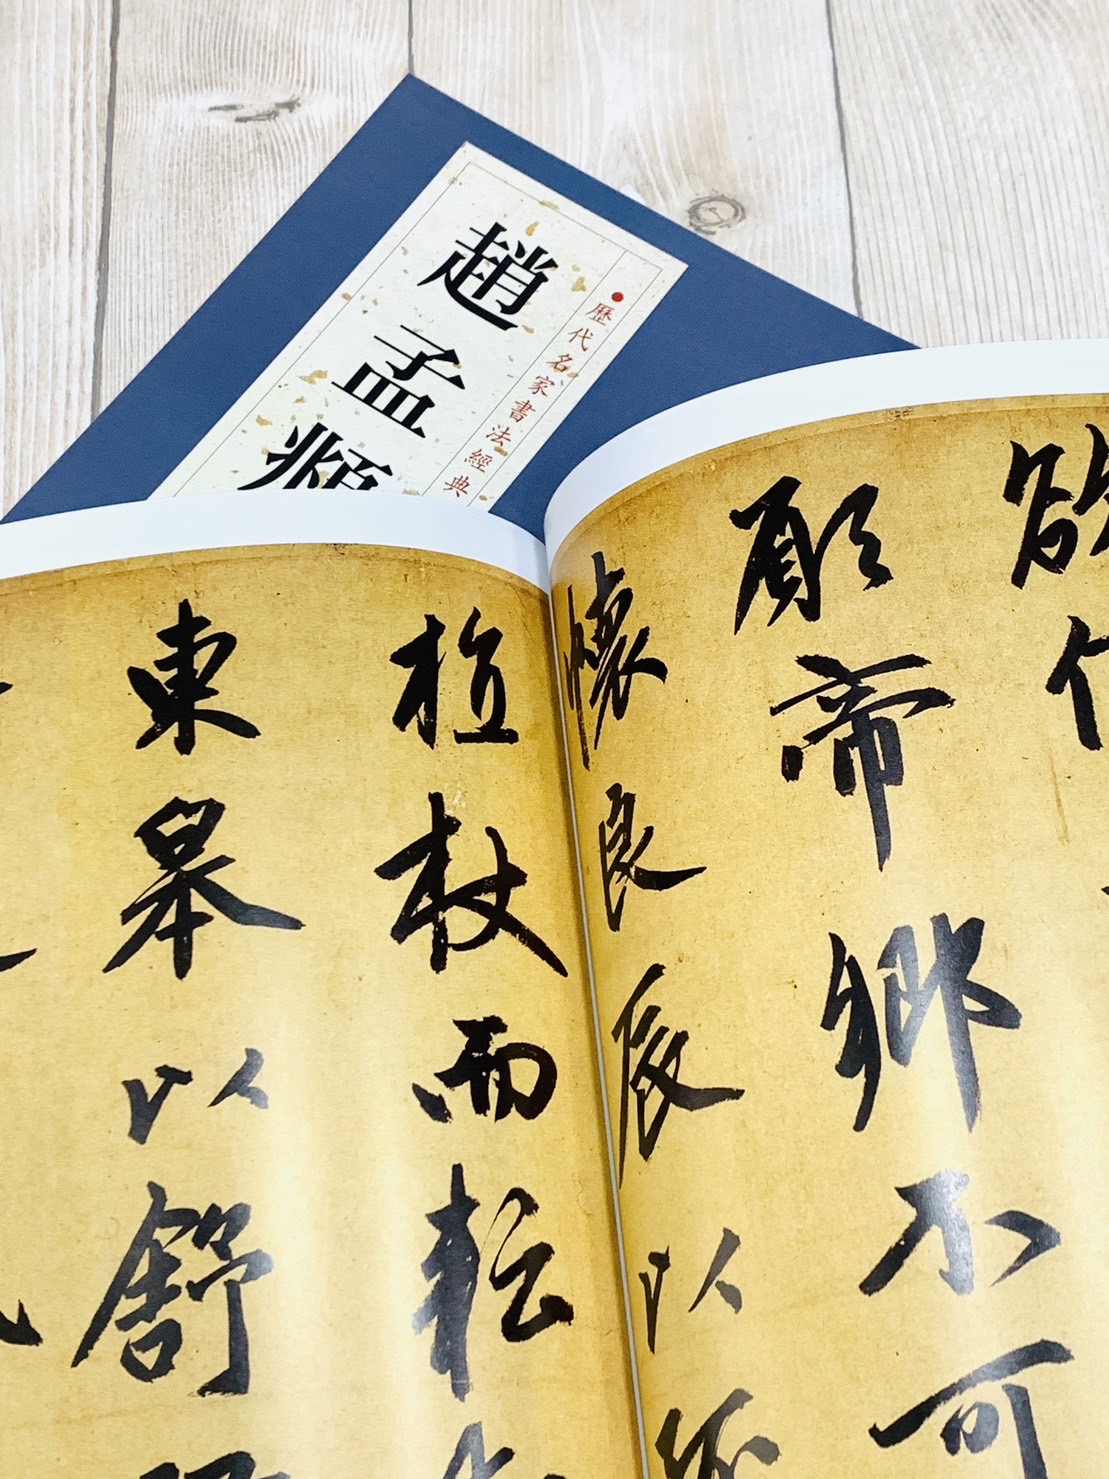 趙孟頫
歷代名家書法經典
欲何
願帝鄉不可
懷良辰以孤
植杖而耘
東皋以舒